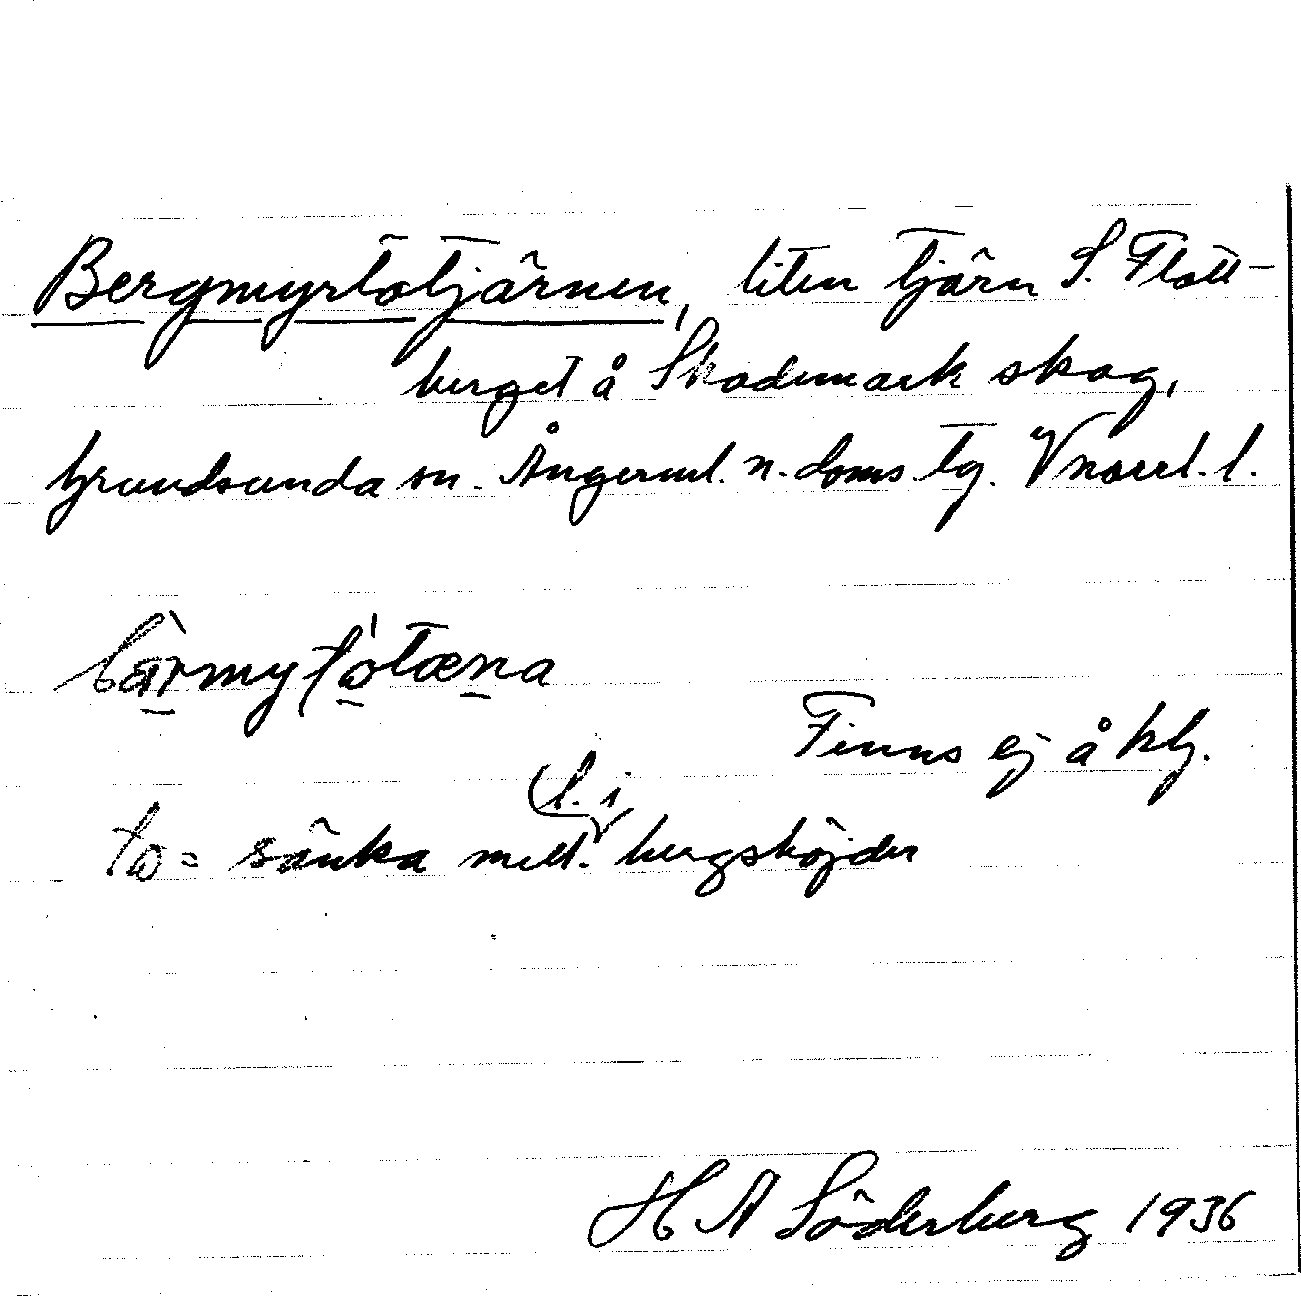 Bergmyrtotjärnen, liten tjärn S. Flatt-
berget å Skademark skog,
Grundsunda sn. Ångerml. n. doms. tg. Vnorrl. l.
bärmytotæna
Finns ej å kb.
(l. i
to = sänka mell. bergshöjder
H A Söderberg 1936